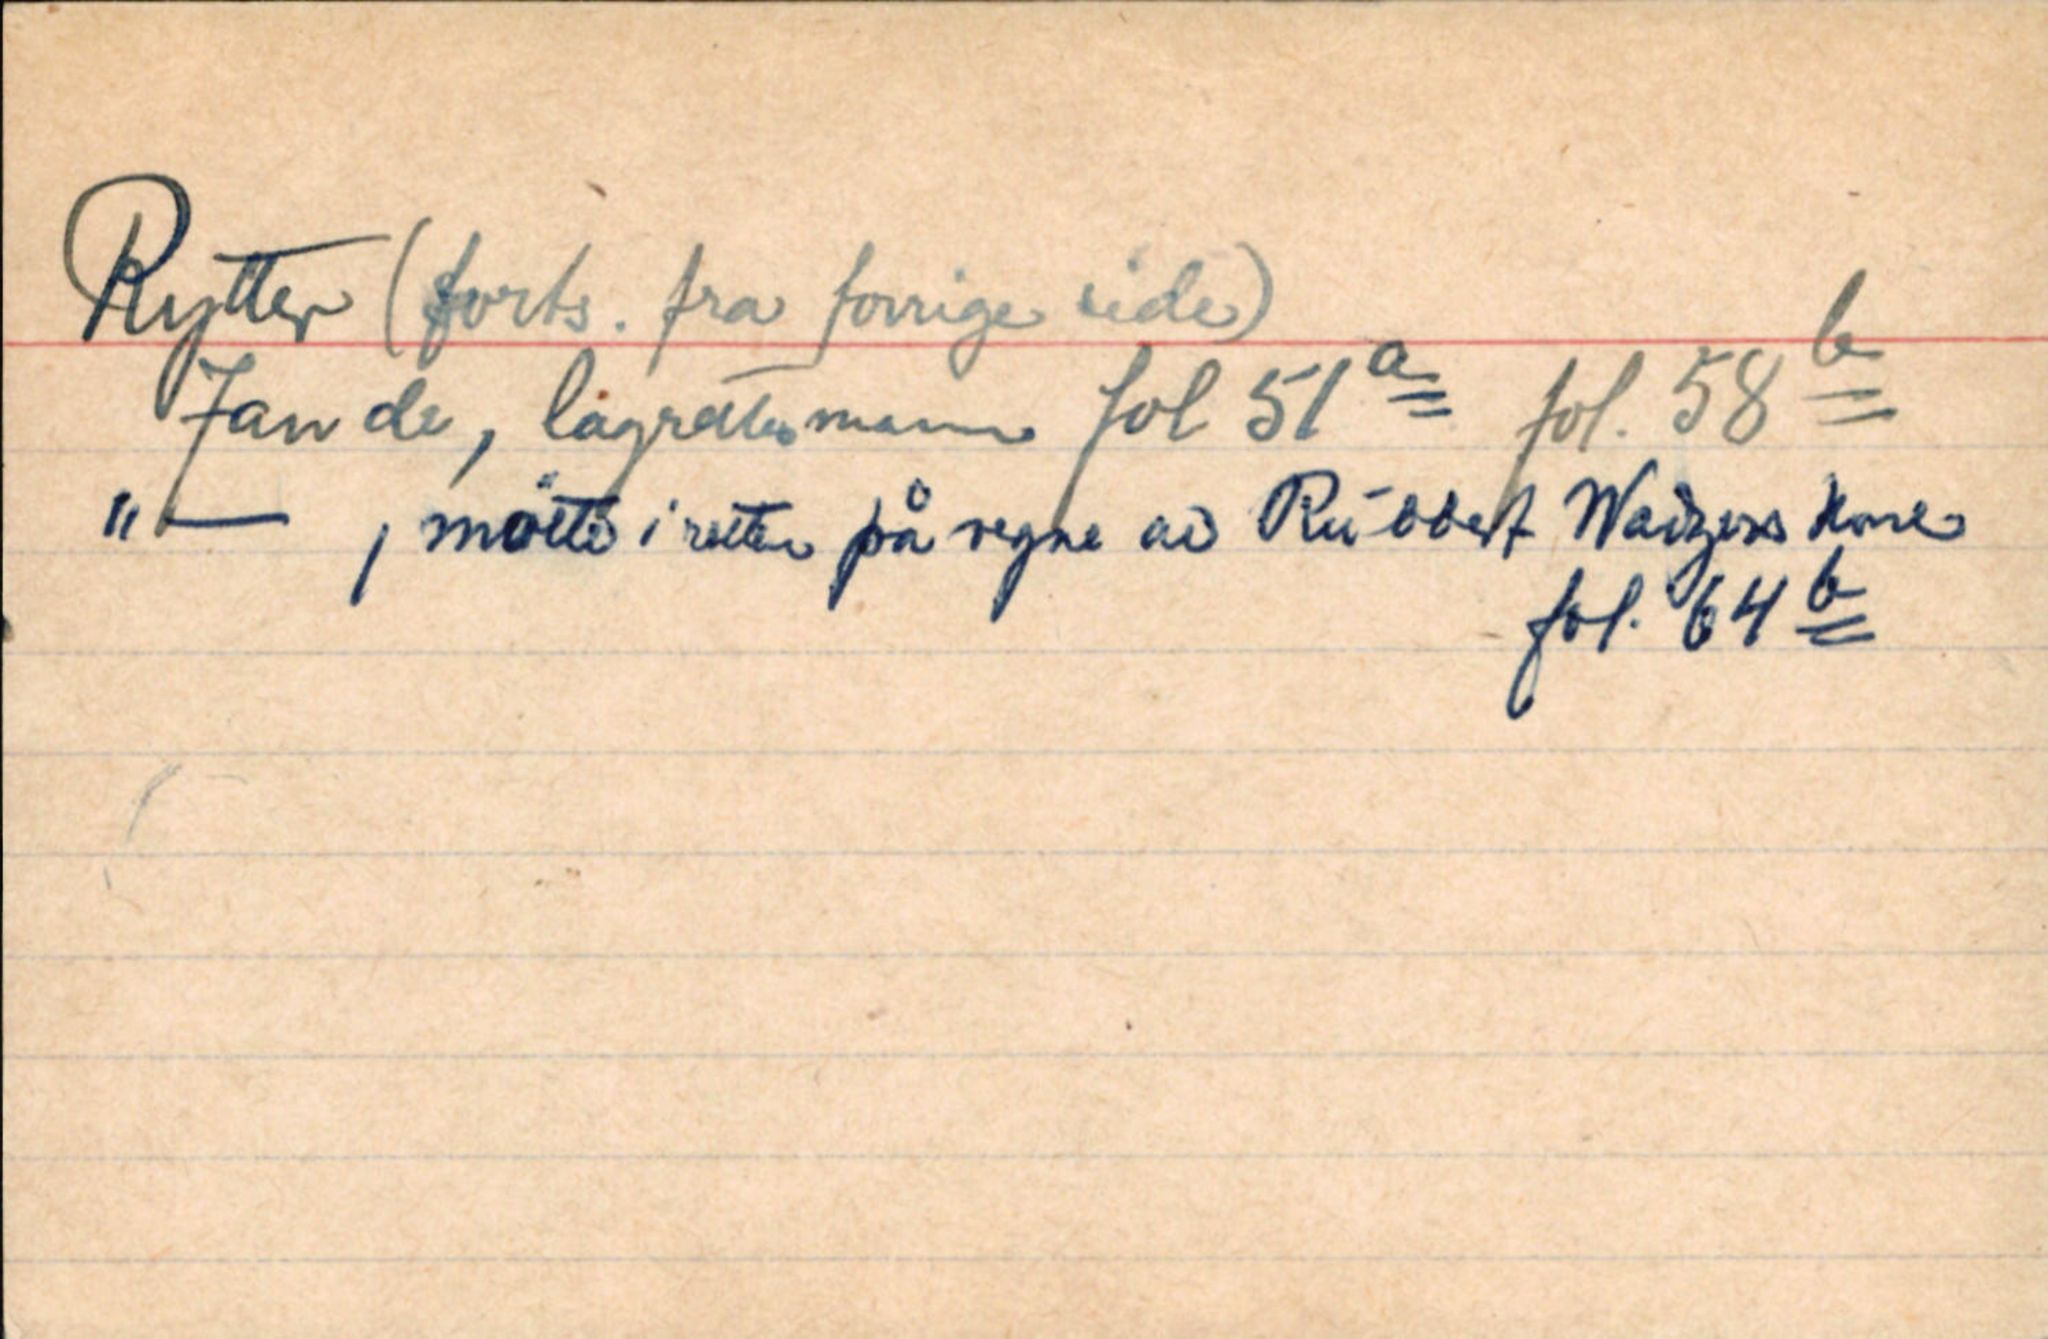 Rytter (forts. fra forrige side)
Jan de, lagrettesmann fol 51ª fol. 58ᵇ
"— , mötte i retten på vegne av Rübbert Waitzers kone
fol. 64ᵇ